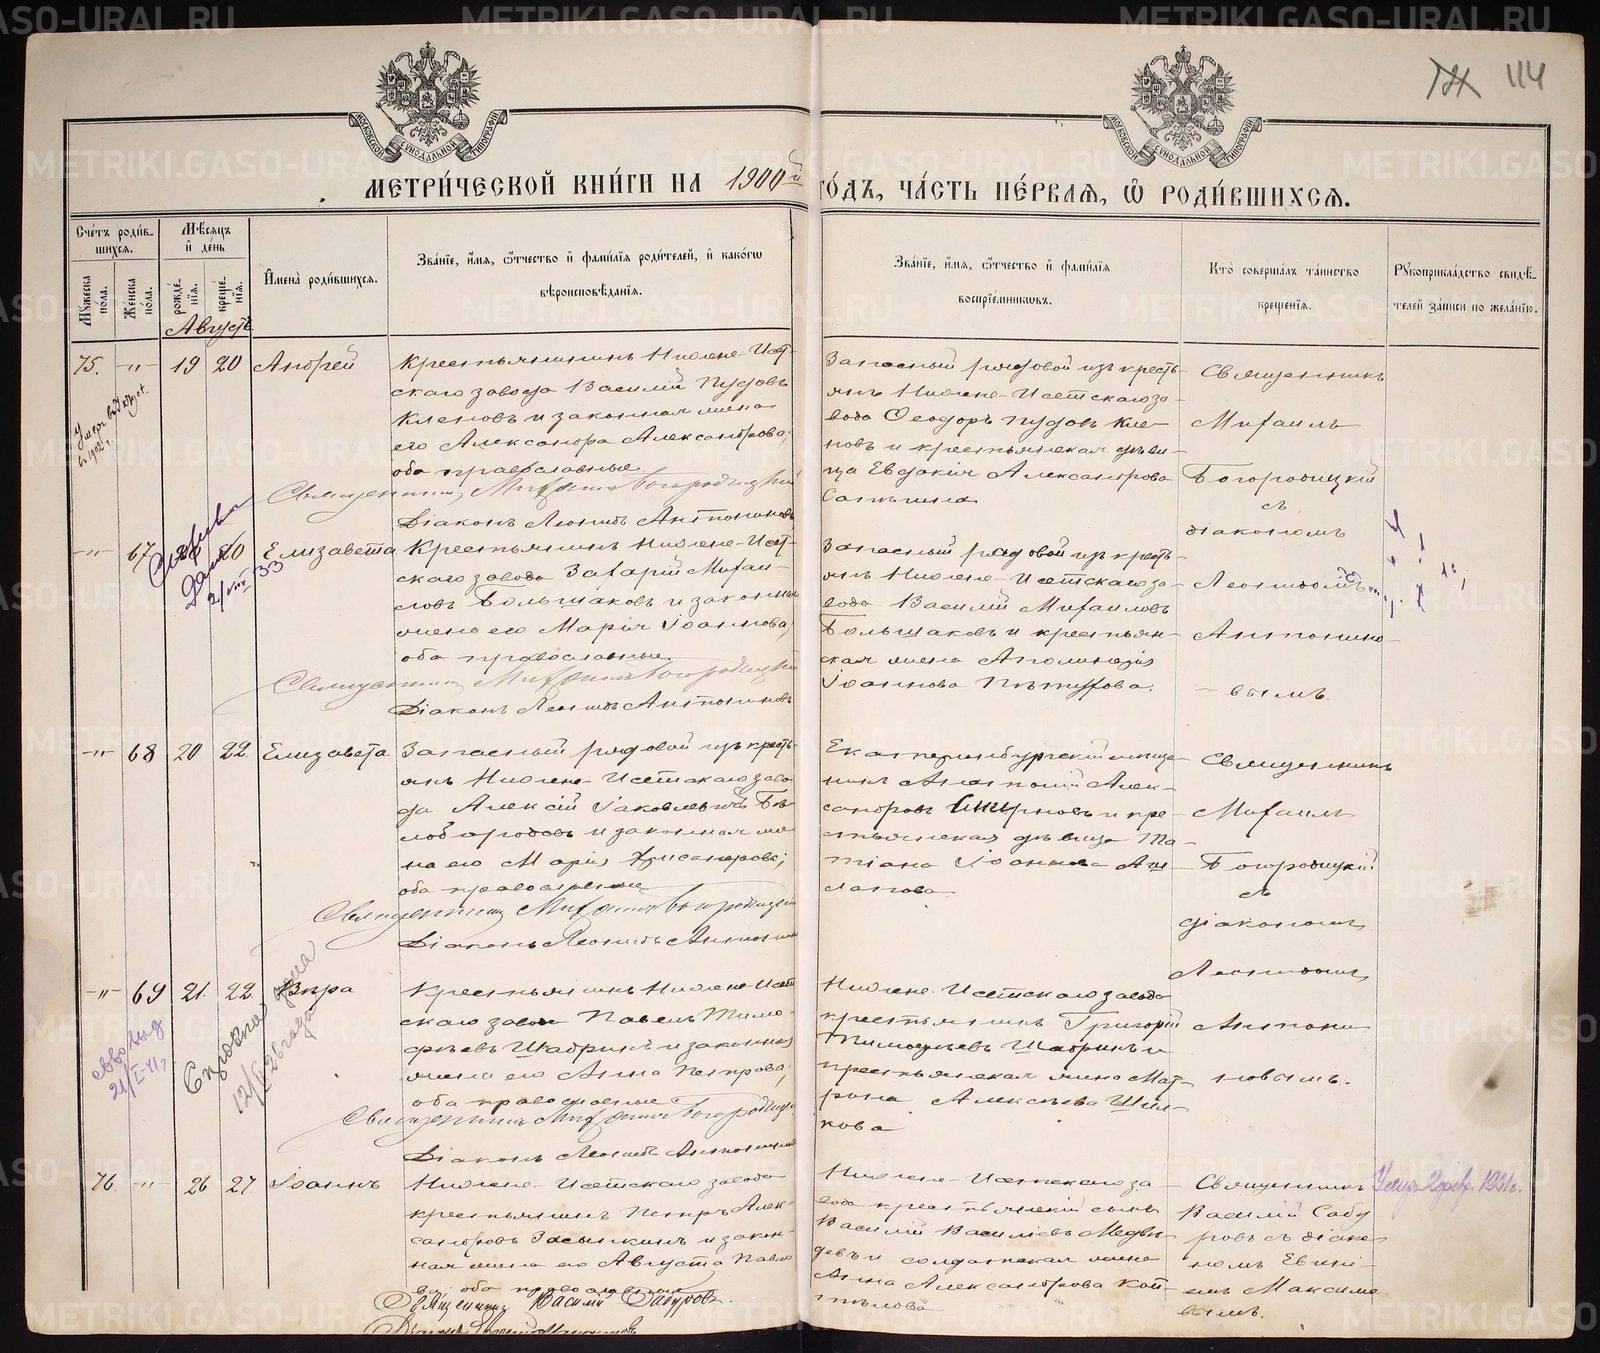 114
МЕТРИ́ЧЕСКОЙ КНИ́ГИ НА 1900й ГО́ДЪ, ЧА́СТЬ ПЕ́РВАЯ, Ѡ РОДИ́ВШИХСЯ.
Сче́тъ роди́в-
шихся.
Мꙋжеска
пола.
Же́нска
по́ла.
Мѣсяцъ
и де́нь
рожде́-
нїя.
креще́-
нїя.
И́мена роди́вшихся.
Зва́нїе, и́мя, ѻ҆́тчество и фами́лїя роди́телей, и како́гѡ
вѣроисповѣ́данїя.
Зва́нїе, и́мя, ѻ҆́тчество и фами́лїя
воспрїе́мникѡвъ.
Кто̀ соверша́лъ та́инство
креще́нїя.
Рꙋкоприкла́дство свидѣ́-
телей за́писи по жела́нїю.
Августъ
75. -"- 19 20 Андрей
Крестьянинъ Нижне-Исет-
скаго завода Василій Пудовъ
Кленовъ и законная жена
его Александра Александрова,
оба православные.
Священникъ Михаилъ Богородицкій
Діаконъ Леонидъ Антониновъ
Запасный рядовой изъ кресть-
янъ Нижне-Исетскаго за-
вода Ѳеодоръ Пудовъ Кле-
новъ и крестьянская дѣви-
ца Евдокія Александрова
Священникъ
Михаилъ
Богородицкій
съ
діакономъ
Умеръ
въ 1902 г.
-"- 67 20 Елизавета
Крестьянинъ Нижне-Исет-
скаго завода Захарій Михаи-
ловъ Большаковъ и законная
жена его Марія Іоаннова,
оба православные.
Священникъ Михаилъ Богородицкій
Діаконъ Леонидъ Антониновъ
Запасный рядовой изъ кресть-
янъ Нижне-Исетскаго за-
вода Василій Михаиловъ
Большаковъ и крестьян-
ская жена
Іоаннова
Леонидомъ
Антонино-
-вымъ.
-"- 68 20 22 Елизавета
Запасный рядовой изъ кресть-
янъ Нижне-Исетскаго заво-
да Алексій Іаковлевъ Бѣ-
лобородовъ и законная же-
на его Марія
оба православные
Священникъ Михаилъ Богородицкій
Діаконъ Леонидъ Антониновъ
Екатеринбургскій мѣща-
нинъ Алек-
сандровъ Смирновъ и кре-
стьянская дѣвица Та-
тіана Іоаннова
Священникъ
Михаилъ
Богородицкій
съ
діакономъ
Леонидомъ
-"- 69 21. 22. Вѣра
Крестьянинъ Нижне-Исет-
скаго завода Павелъ Тимо-
фѣевъ Шабринъ и законная
жена его Анна Петрова,
оба православные
Священникъ Михаилъ Богородицкій
Діаконъ Леонидъ Антониновъ
Нижне-Исетскаго завода
крестьянинъ Григорій
Тимофѣевъ Шабринъ и
крестьянская жена Мат-
рона Алексѣева
Антони-
новымъ.
Справка дана
76. -"- 26 27. Іоаннъ
Нижне-Исетскаго завода
крестьянинъ Петръ Алек-
сандровъ Засыпкинъ и закон-
ная жена его Августа Павло-
ва, оба православные
Священникъ Василій Сабуровъ.
Нижне-Исетскаго за-
вода крестьянскій сынъ
Василій Василіевъ Медвѣ-
девъ и солдатская жена
Анна Александрова
Священникъ
Василій Сабу-
ровъ съ діако-
номъ Евгені-
емъ Максимо-
вымъ.
1931 г.
METRIKI.GASO-URAL.RU